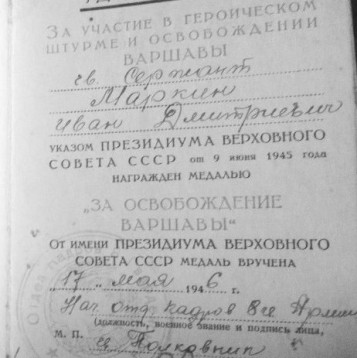 ЗА УЧАСТИЕ В ГЕРОИЧЕСКОМ
ШТУРМЕ И ОСВОБОЖДЕНИИ
ВАРШАВЫ
гв. Сержант
Маркин
Иван Дмитриевич
УКАЗОМ ПРЕЗИДИУМА ВЕРХОВНОГО
СОВЕТА СССР от 9 июня 1945 года
НАГРАЖДЕН МЕДАЛЬЮ
„ЗА ОСВОБОЖДЕНИЕ
ВАРШАВЫ“
ОТ ИМЕНИ ПРЕЗИДИУМА ВЕРХОВНОГО
СОВЕТА СССР МЕДАЛЬ ВРУЧЕНА
„17„ мая 1946 г.
Нач отд кадров 8 гв Армии
(должность, военное звание и подпись лица,
М. П. гв. Полковник